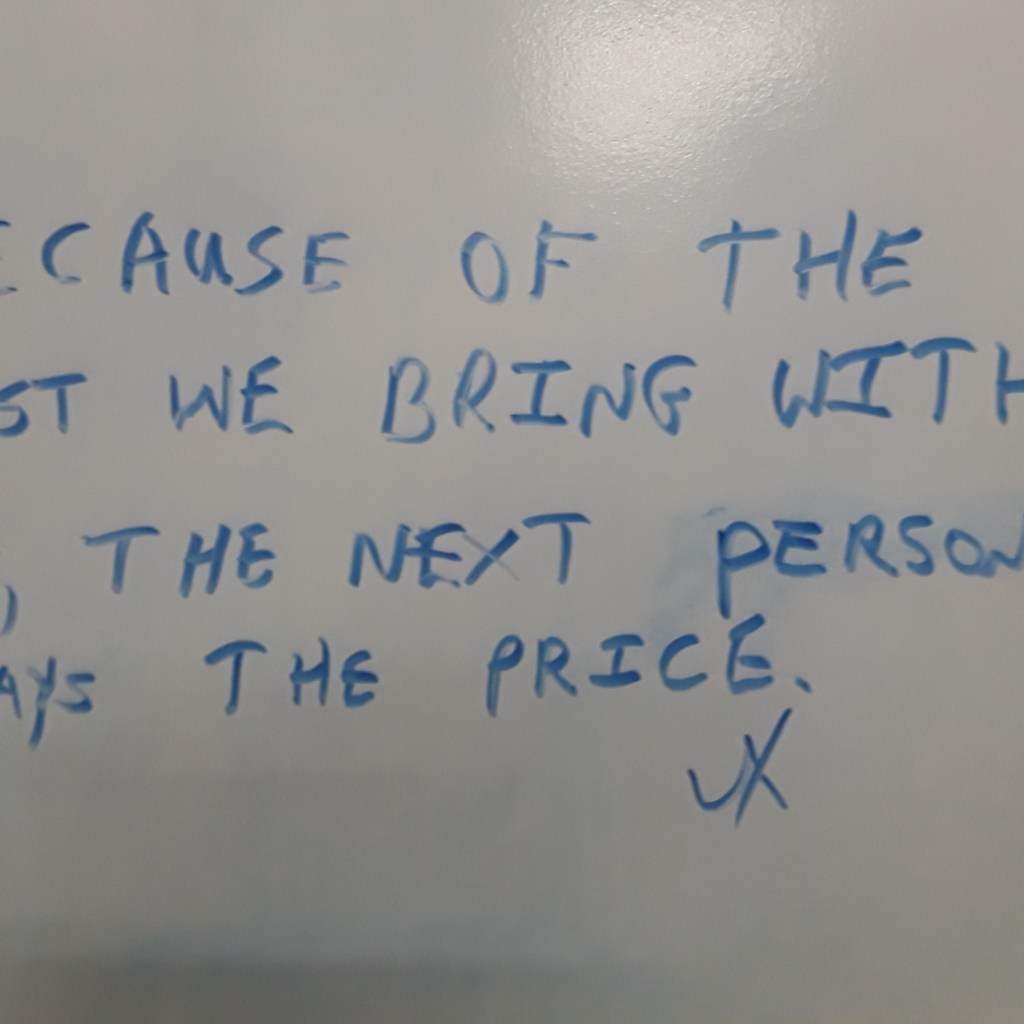 ECAUSE OF THE
ST WE BRING WITH
, THE NEXT PERSON
AYS THE PRICE.